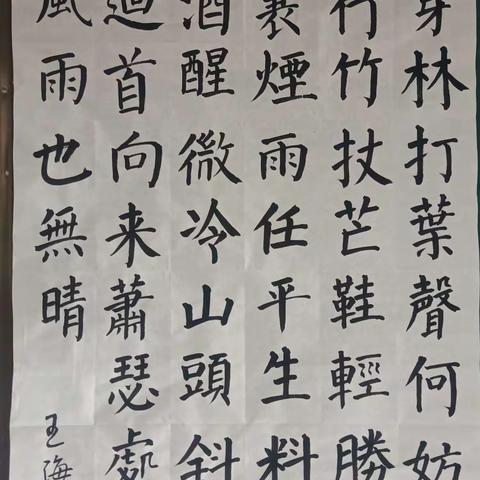 穿林打葉聲何妨
行竹杖芒鞋輕勝
蓑煙雨任平生料
酒醒微冷山頭斜
迴首向来蕭瑟處
風雨也無晴
王海